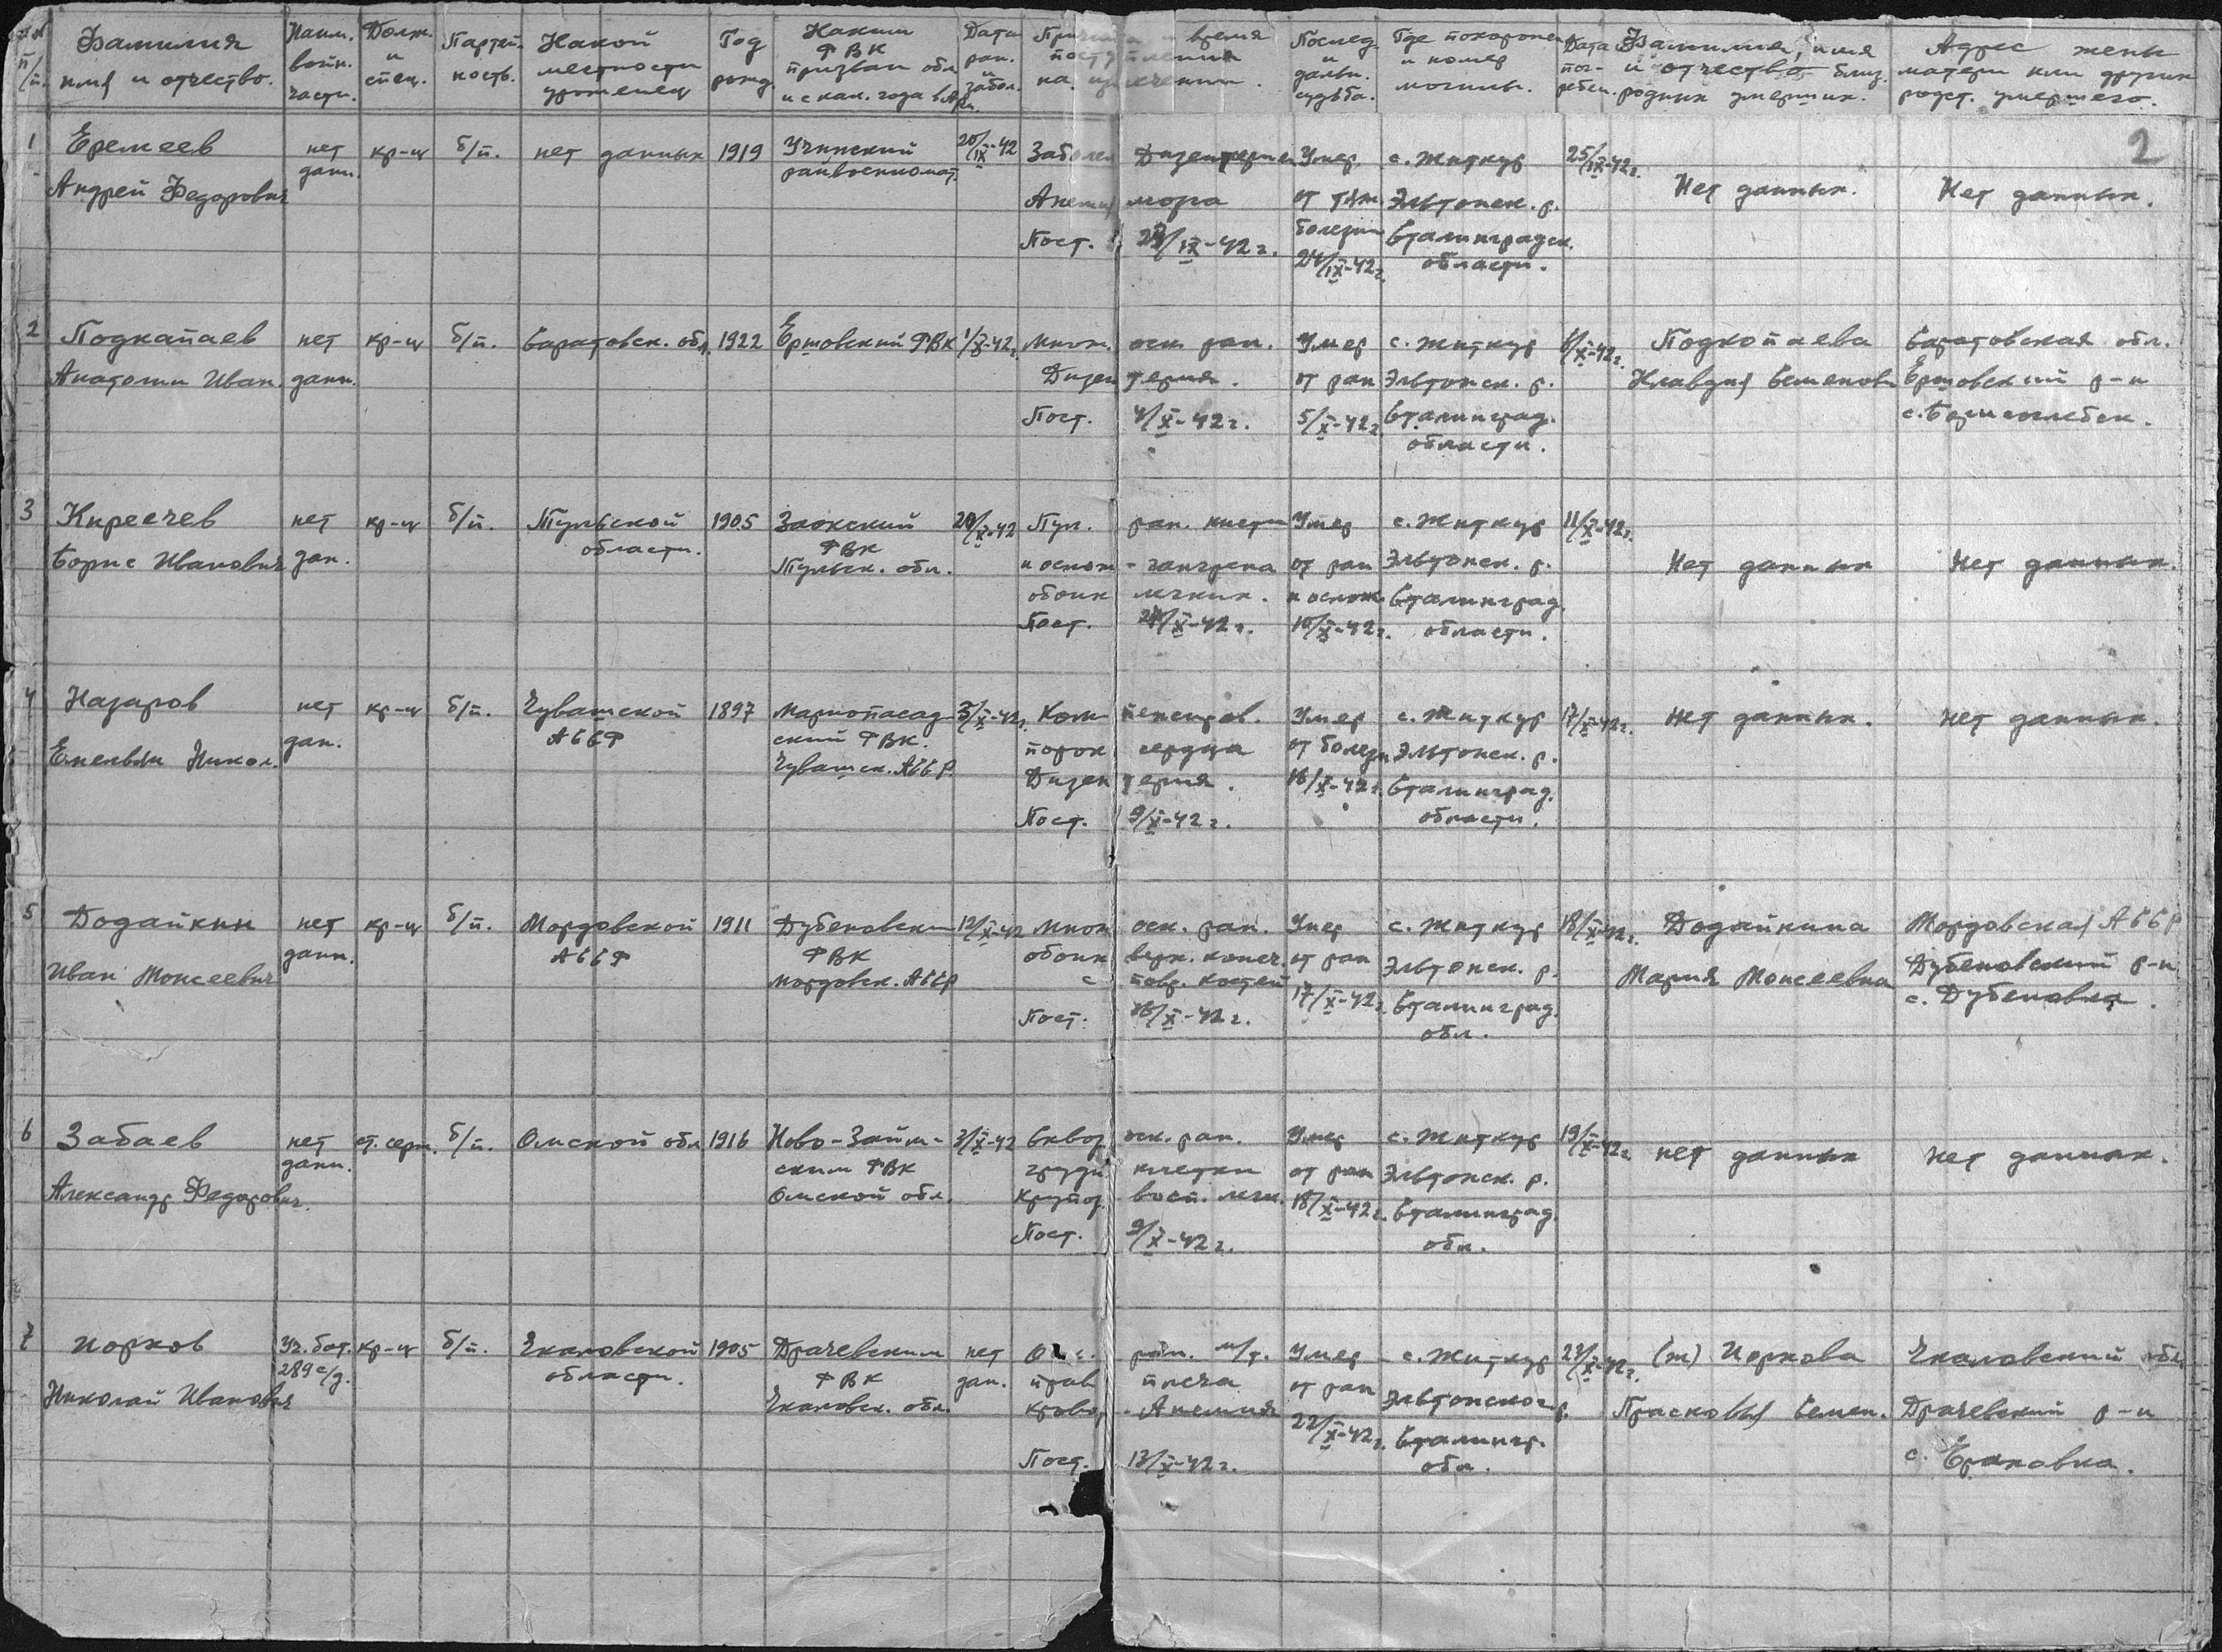 № п/п.
Фамилия имя и отчество.
Наим. воин. части.
Долж. и спец.
Партей- ность.
Какой местности уроженец
Год рожд.
Каким РВК призван обл. и с как. года в Арм.
Дата ран. и забол.
Причина и время поступления на излечении.
Послед. и дальн. судьба.
Где похоронен и номер могилы.
Дата пог- ребен.
Фамилия, имя и отчество близ. родных умерших.
Адрес жены матери или других родст. умершего.
2
1
Еремеев
Андрей Федорович
нет данн.
кр-ц
б/п.
нет данных
1919
Учинский райвоенкомат.
20/IX-42
Заболев Дизентерией
Пост. /IX-42 г.
Умер от тяж. болезни 24/IX-42 г.
с. Житкур Эльтонск. р. Сталинградск. области.
25/IX-42 г.
Нет данных.
Нет данных.
2
Подкапаев
Анатолий Иван.
нет данн.
кр-ц
б/п.
Саратовск. обл.
1922
Ершовский РВК
1/X-42 г.
Множ. оск. ран.
Дизентерия.
Пост. 4/X-42 г.
Умер от ран 5/X-42 г.
с. Житкур Эльтонск. р. Сталинград. области.
6/X-42 г.
Подкопаева
Клавдия Семеновн
Саратовская обл.
Ершовский р-н
с. Борисоглебск.
3
Киреечев
Борис Иванович
нет дан.
кр-ц
б/п.
Тульской области.
1905
Заокский РВК Тульск. обл.
/X-42
Пул. ран. кисти
и ослож - гангрена
обоих легких.
Пост. /X-42 г.
Умер от ран и ослож. 10/X-42 г.
с. Житкур Эльтонск. р. Сталинград. области.
11/X-42 г.
Нет данных
Нет данных.
4
Назаров
Емельян Никол.
нет дан.
кр-ц
б/п.
Чувашской АССР
1897
Мариопасад- ский РВК. Чувашск. АССР.
/X-42 г.
Ком пенсиров.
порок сердца
Дизентерия.
Пост. 9/X-42 г.
Умер от болезн 16/X-42 г.
с. Житкур Эльтонск. р. Сталинград. области.
17/X-42 г.
Нет данных.
Нет данных.
5
Додайкин
Иван Моисеевич
нет данн.
кр-ц
б/п.
Мордовской АССР
1911
Дубеновским РВК Мордовск. АССР
12/X-42
Множ оск. ран.
обоих верх. конеч.
с повр. костей
Пост. 16/X-42 г.
Умер от ран 17/X-42 г.
с. Житкур Эльтонск. р. Сталинград. обл.
18/X-42 г.
Додайкина
Мария Моисеевна
Мордовская АССР
Дубеновский р-н
с. Дубеновка.
6
Забаев
Александр Федорович.
нет данн.
ст. серж.
б/п.
Омской обл
1916
Ново-Займ- ским РВК Омской обл.
3/X-42
Сквоз. оск. ран.
грудн. клетки
крупоз. восп. легк.
Пост. 9/X-42 г.
Умер от ран 18/X-42 г.
с. Житкур Эльтонск. р. Сталинград. обл.
19/X-42 г.
нет данных
нет данных.
7
Норков
Николай Иванович
Уч. бат. 289 с/д.
кр-ц
б/п.
Чкаловской области.
1905
Драчевским РВК Чкаловск. обл.
нет дан.
ран. м/т.
прав плеча
Анемия
Пост. 13/X-42 г.
Умер от ран 22/X-42 г.
с. Житкур Эльтонског р. Сталингр. обл.
23/X-42 г.
(ж) Норкова
Прасковья Семен.
Чкаловский обл.
Драчевский р-н
с. Ерановка.